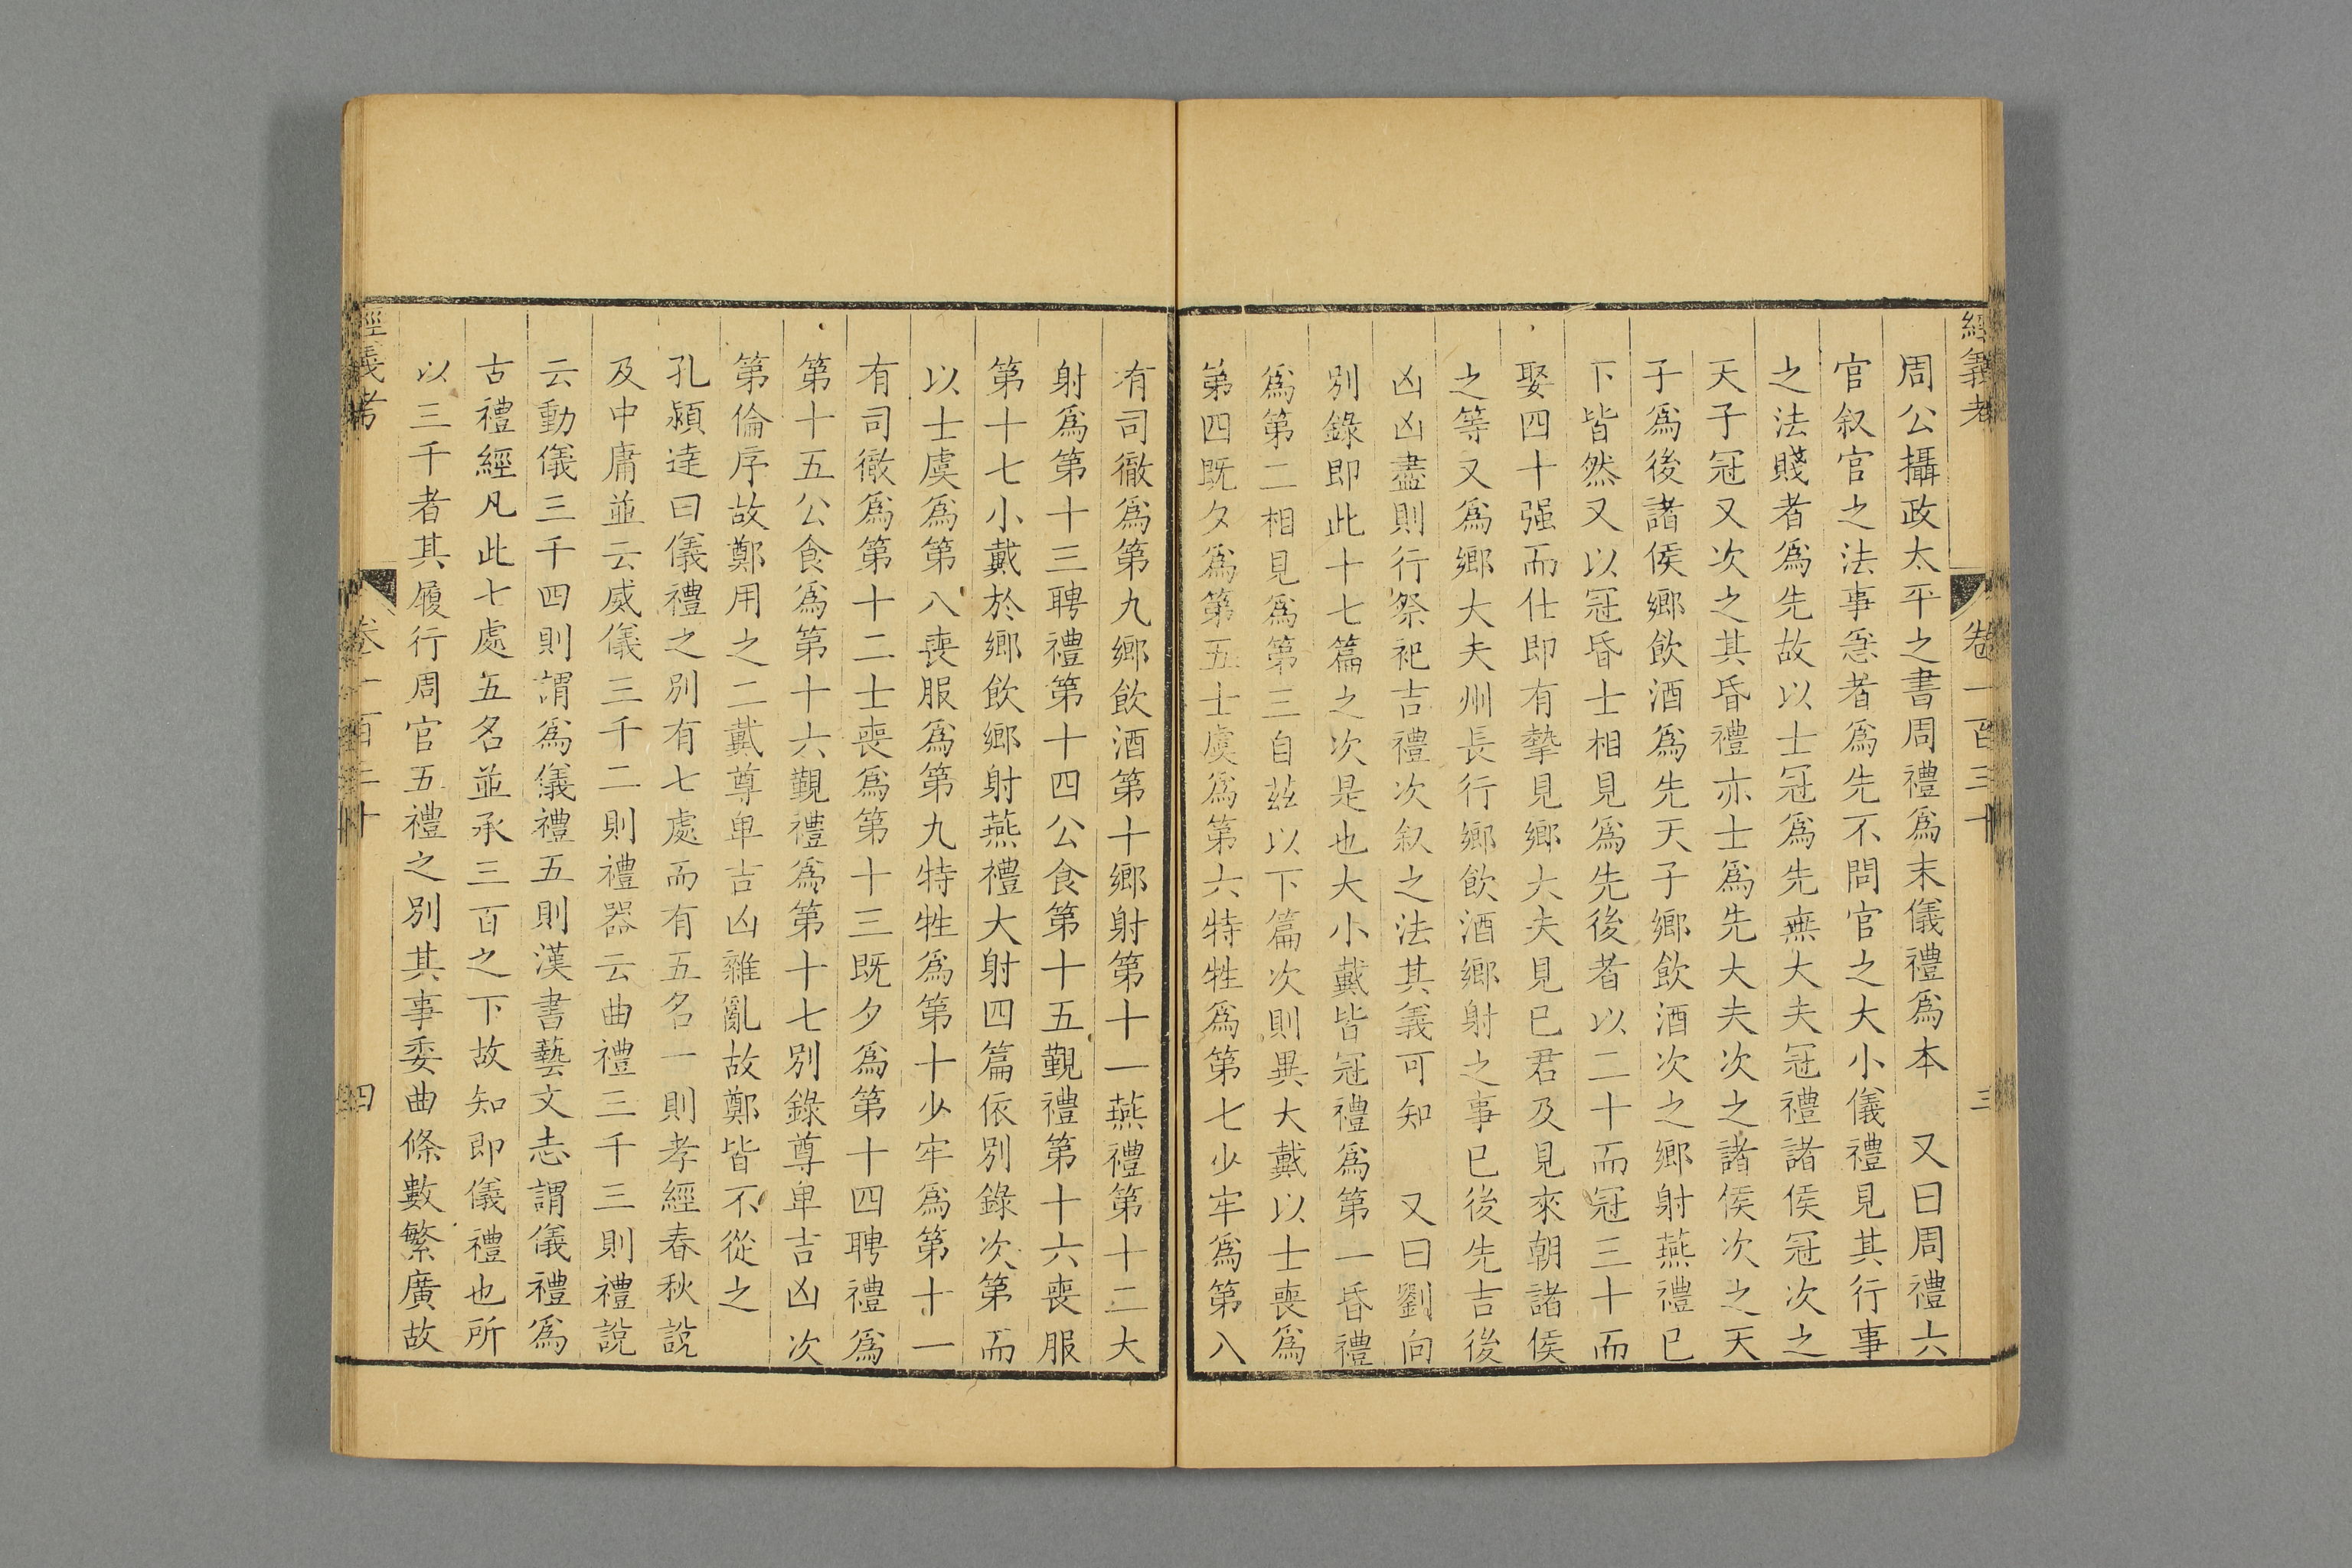 經義考 卷一百三十 三
周公攝政太平之書周禮爲末儀禮爲本 又曰周禮六
官叙官之法事急者爲先不問官之大小儀禮見其行事
之法賤者爲先故以士冠爲先無大夫冠禮諸侯冠次之
天子冠又次之其昏禮亦士爲先大夫次之諸侯次之天
子爲後諸侯鄉飲酒爲先天子鄉飲酒次之鄉射燕禮已
下皆然又以冠昏士相見爲先後者以二十而冠三十而
娶四十强而仕即有摯見鄉大夫見已君及見來朝諸侯
之等又爲鄉大夫州長行鄉飲酒鄉射之事已後先吉後
凶凶盡則行祭祀吉禮次叙之法其義可知 又曰劉向
別錄即此十七篇之次是也大小戴皆冠禮爲第一昏禮
爲第二相見爲第三自茲以下篇次則異大戴以士喪爲
第四既夕爲第五士虞爲第六特牲爲第七少牢爲第八
有司徹爲第九鄉飲酒第十鄉射第十一燕禮第十二大
射爲第十三聘禮第十四公食第十五覲禮第十六喪服
第十七小戴於鄉飲鄉射燕禮大射四篇依別錄次第而
以士虞爲第八喪服爲第九特牲爲第十少牢爲第十一
有司徹爲第十二士喪爲第十三既夕爲第十四聘禮爲
第十五公食爲第十六覲禮爲第十七別錄尊卑吉凶次
第倫序故鄭用之二戴尊卑吉凶雜亂故鄭皆不從之
孔潁達曰儀禮之別有七處而有五名一則孝經春秋說
及中庸並云威儀三千二則禮器云曲禮三千三則禮說
云動儀三千四則謂爲儀禮五則漢書藝文志謂儀禮爲
古禮經凡此七處五名並承三百之下故知即儀禮也所
以三千者其履行周官五禮之別其事委曲條數繁廣故
經義考 卷一百三十 四